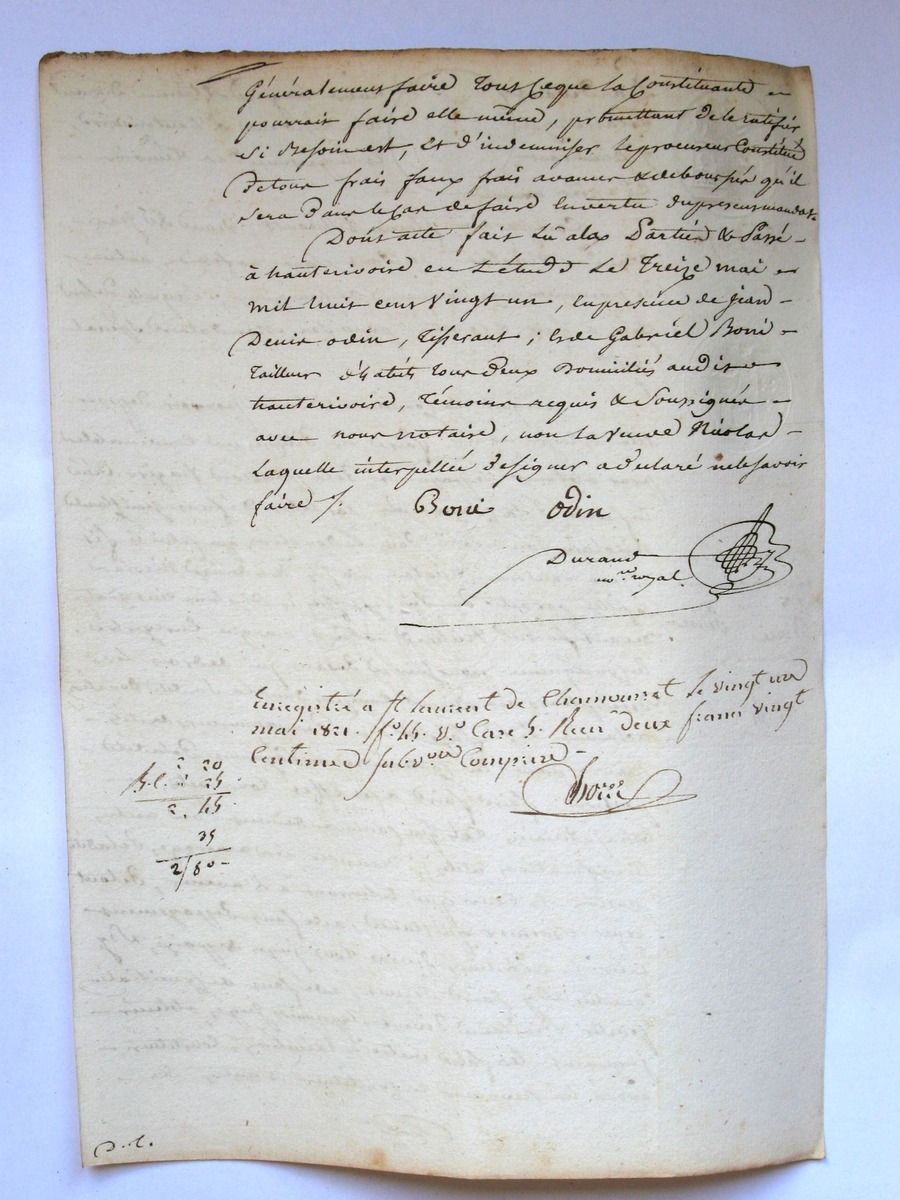 Généralement faire tous ce que la Constituante
pourrait faire elle même, promettant de le ratifier
si Besoin est, et d'indemniser le procureur Constitué
de tous frais faux frais avances & deboursés qu'il
sera dans le Cas de faire en vertu du present mandat.
Dont acte fait Lu aux Parties & Passé
à hauterivoire en L'étude Le Treize mai
mil huit cent Vingt un, en presence de jean
Denis odin, Tisserant; et de Gabriel Boni
Tailleur d'habits tous deux Domiciliés audit
hauterivoire, témoins requis & Soussignés
avec nous notaire, non la veuve Nicolas
Laquelle interpellée de signer a déclaré ne le savoir
faire ./.
Boni odin
Durand
nore royal.
Enregistré a st Laurent de Chamousset Le vingt un
mai 1821. fo 45. vo Case 5. Reçu deux francs vingt
Centimes subvon Comprise
2 20
25
2. 45
35
2/80